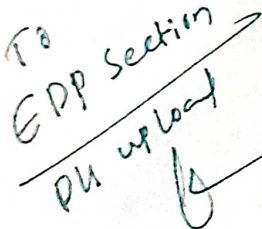 To
EDP Section
Pls upload